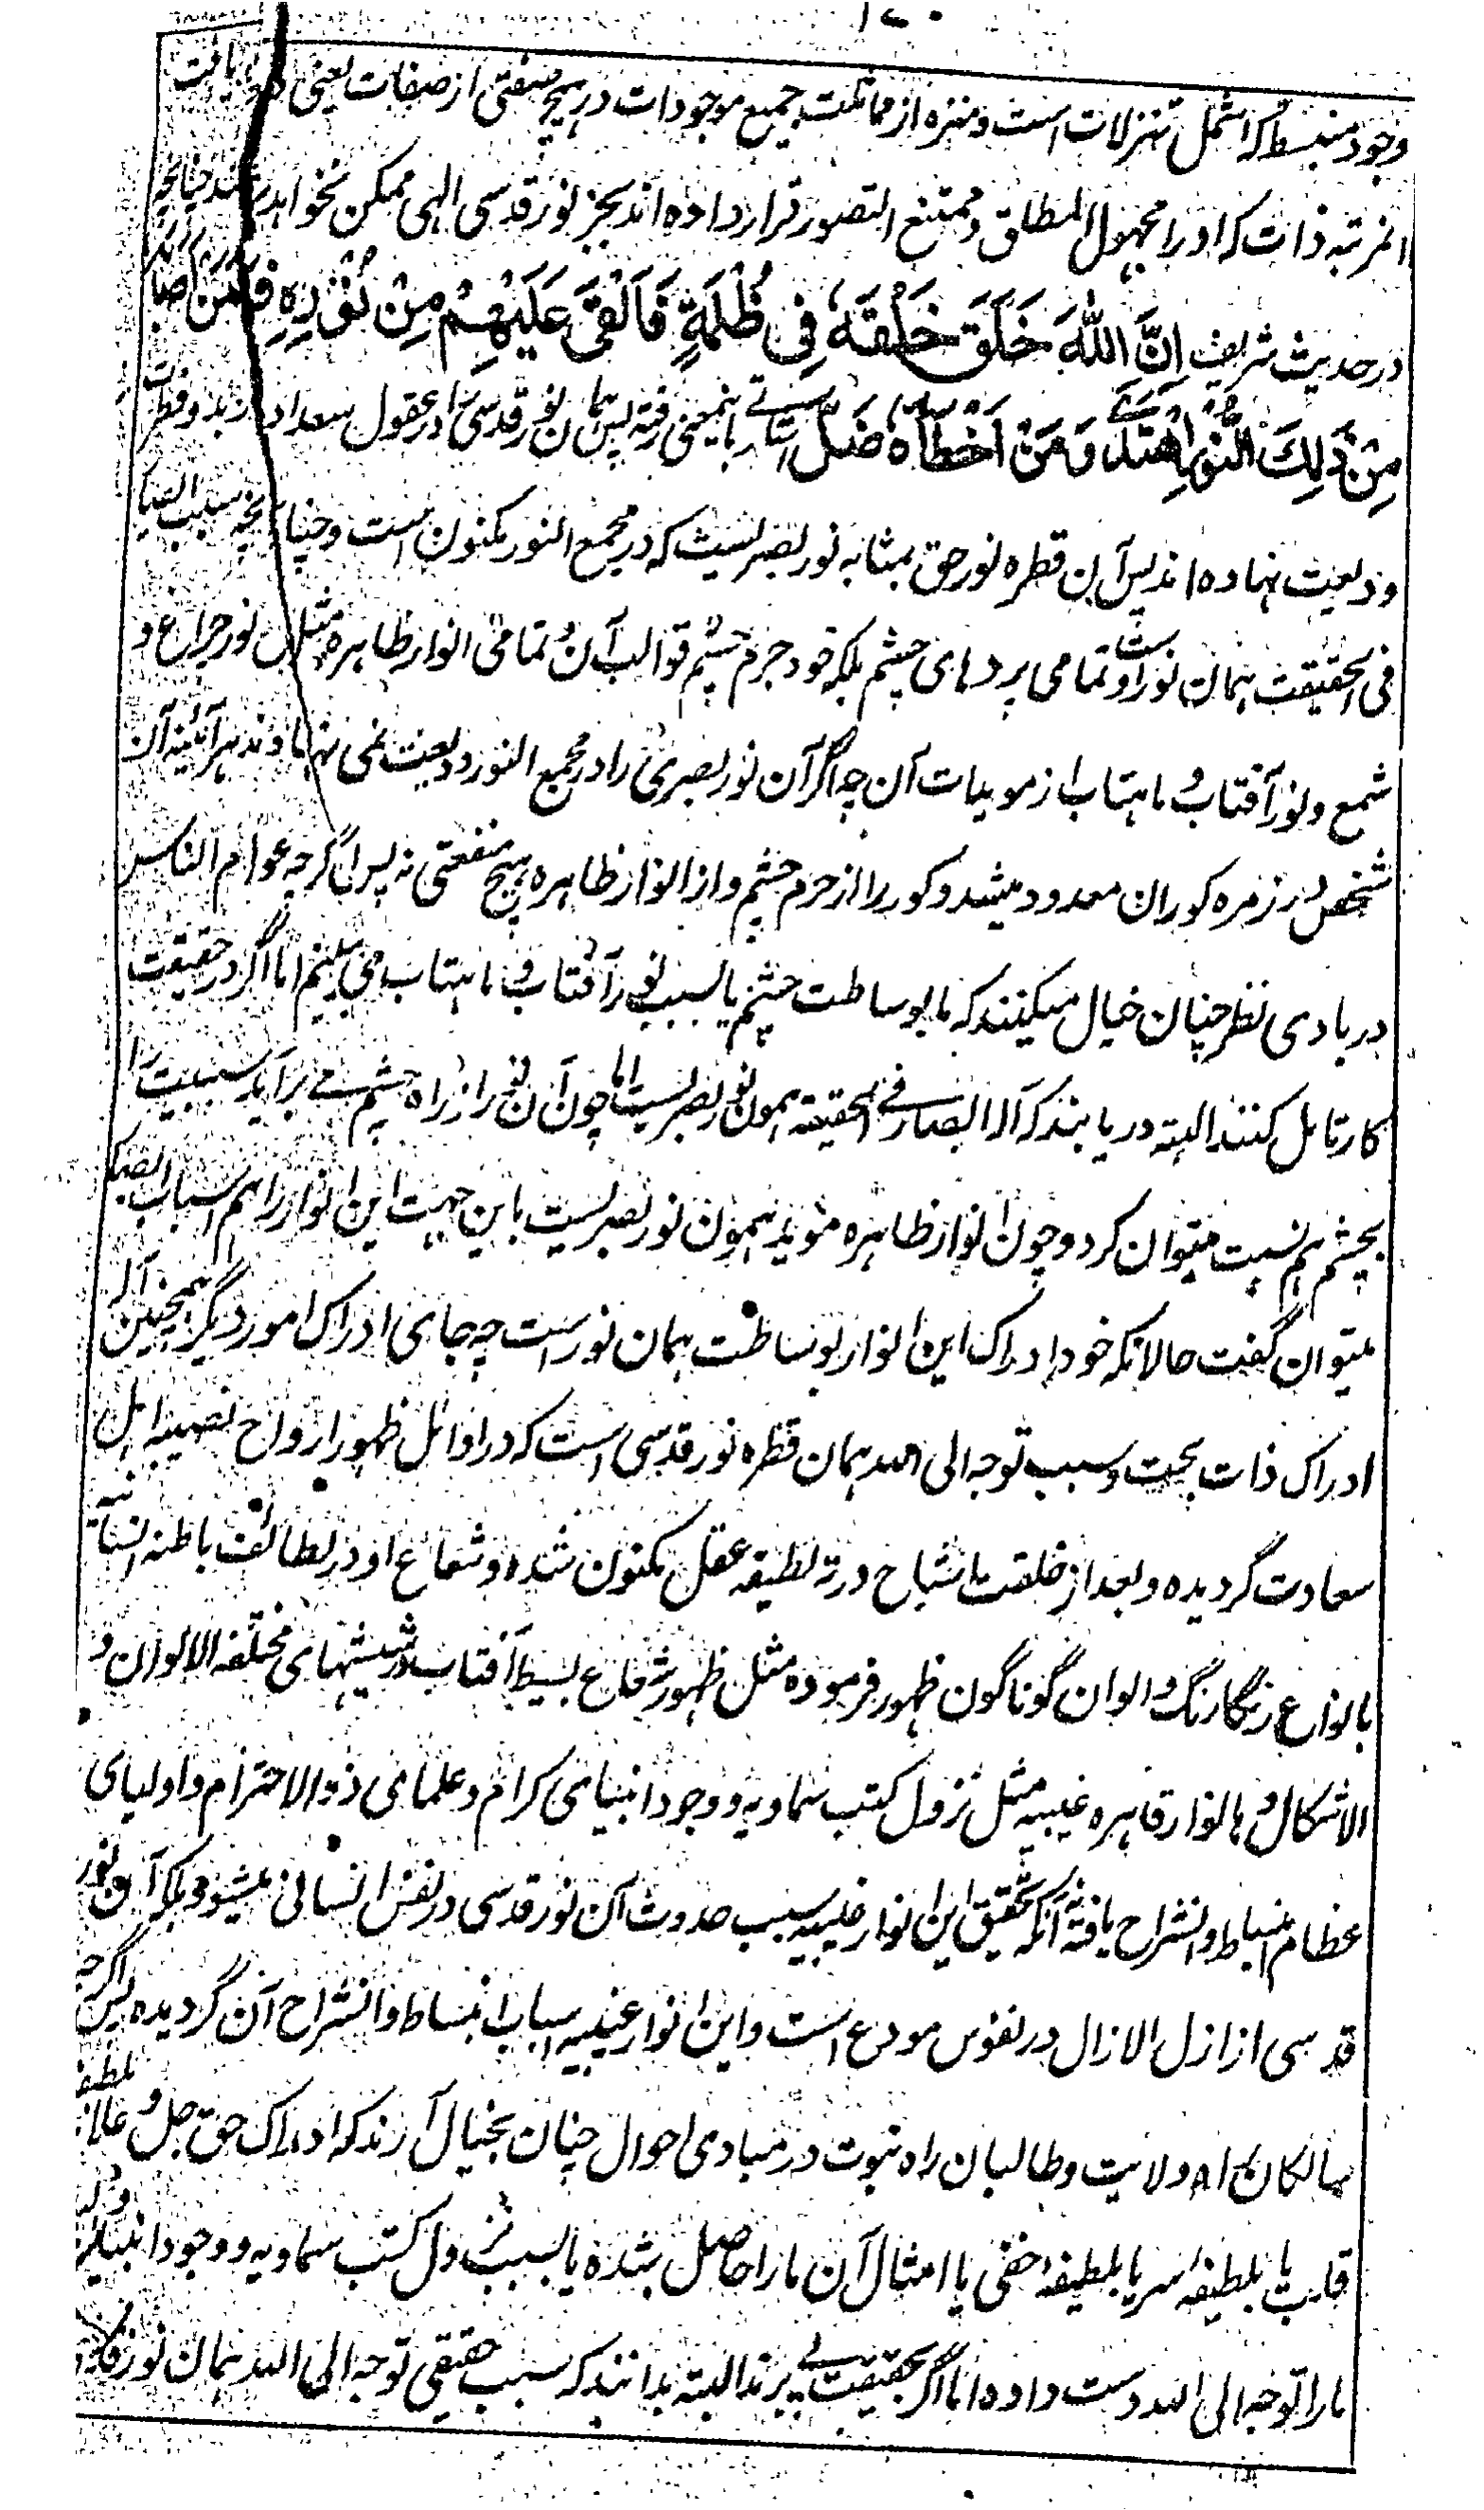 وجود منبسط که اشمل تنزلات است و منزه از مماثلت جمیع موجودات در هیچ صفتی از صفات یعنی دریافت
انمرتبه ذات که او را مجهول المطلق و ممتنع التصور قرار داده اند بجز نور قدسی الهی ممکن نخواهد شد چنانچه
در حدیث شریف اِنَّ اللّٰهَ خَلَقَ خَلْقَهٗ فِی ظُلْمَةٍ فَاَلْقٰی عَلَیْهِمْ مِنْ نُوْرِهٖ فَمَنْ اَصَابَهٗ
مِنْ ذٰلِكَ النُّوْرِ اِهْتَدٰی وَمَنْ اَخْطَاَهٗ ضَلَّ اشارتے باینمعنی رفته پس همان نور قدسی را در عقول سعدا در بدو فطرت
ودیعت نهاده اند پس آن قطره نور حق بمثابه نور بصریست که در مجمع النور مکنون است و چنانچه سبب ابصار
فی الحقیقت همان نور است و تمامی پردهای چشم بلکه خود جرم چشم قوالب آن و تمامی انوار ظاهره مثل نور چراغ و
شمع و نور آفتاب و ماهتاب از مویدات آن چه اگر آن نور بصری را در مجمع النور ودیعت نمی نهادند هر آئینه آن
شخص در زمره کوران معدود میشد و کور را از جرم چشم و از انوار ظاهره هیچ منفعتی نه پس اگرچه عوام الناس
در بادی نظر چنان خیال میکنند که ما بوساطت چشم یا بسبب نور آفتاب و ماهتاب می بینیم اما اگر در حقیقت
کار تامل کنند البته دریابند که آلۂ ابصار فے الحقیقة همون نور بصریست اما چون آن نور از راه چشم مے برآید سببیت را
بچشم هم نسبت میتوان کرد و چون انوار ظاهره موید همون نور بصریست باین جهت این انوار را هم اسباب ابصار
میتوان گفت حالانکه خود ادراک این انوار بوساطت همان نور است چه جای ادراک امور دیگر همچنین آلۂ
ادراک ذات بحت و سبب توجه الی الله همان قطره نور قدسی است که در اوائل ظهور ارواح نصیبه اهل
سعادت گردیده و بعد از خلقت اشباح در ته لطیفه عقل مکنون شده و شعاع او در لطائف باطنه انسانیه
بانواع رنگارنگ و الوان گوناگون ظهور فرموده مثل ظهور شعاع بسیط آفتاب در شیشهای مختلفه الالوان و
الاشکال و بانوار قاهره غیبیه مثل نزول کتب سماویه و وجود انبیای کرام و علمای ذو الاحترام و اولیای
عظام انبساط و انشراح یافته نه آنکه تحقیق این انوار غیبیه سبب حدوث آن نور قدسی در نفس انسانی میشود بلکه آن نور
قدسی از ازل الازال در نفوس مودع است و این انوار غیبیه اسباب انبساط و انشراح آن گردیده پس اگرچه
سالکان راه ولایت و طالبان راه نبوت در مبادی احوال چنان بخیال آرند که ادراک حق جل و علا بلطیفه
قلب یا بلطیفۂ سر یا بلطیفۂ خفی یا امثال آن ما را حاصل شده یا بسبب نزول کتب سماویه و وجود انبیا
ما را توجه الی الله دست داده اما اگر بحقیقت پے برند البته بدانند که سبب حقیقی توجه الی الله همان نور قدسی